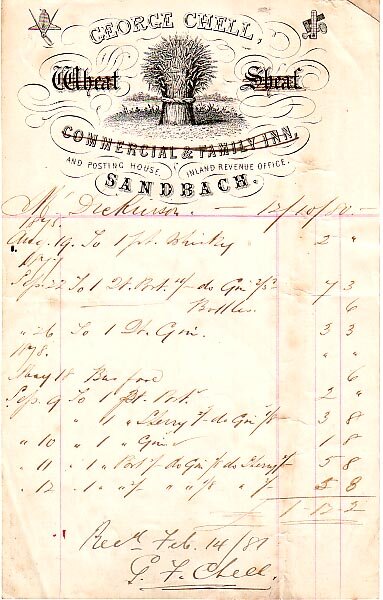 GEORGE CHELL,
Wheat Sheaf
COMMERCIAL & FAMILY INN,
AND POSTING HOUSE. INLAND REVENUE OFFICE.
SANDBACH.
Mr Dickinson 12/10/80.
Aug. 19 To 1 pt. Whisky 2 "
Sep. 22 To 1 Qt. Port 4/- do Gin 3/3 7 3
Bottles 6
" 26 To 1 Qt. Gin 3 3
1878. " "
6
Sep. 9 To 1 Pt. Port 2 "
" " 1 " Sherry 2/- do Gin 1/8 3 8
" 10 " 1 " Gin 1 8
" 11 " 1 " Port 2/- do Gin 1/8 do Sherry 2/- 5 8
" 12 " 1 " " 2/- " " 1/8 " 2/- 5 8
£ 1-12-2
Recd. Feb. 14/81
G. F. Chell.